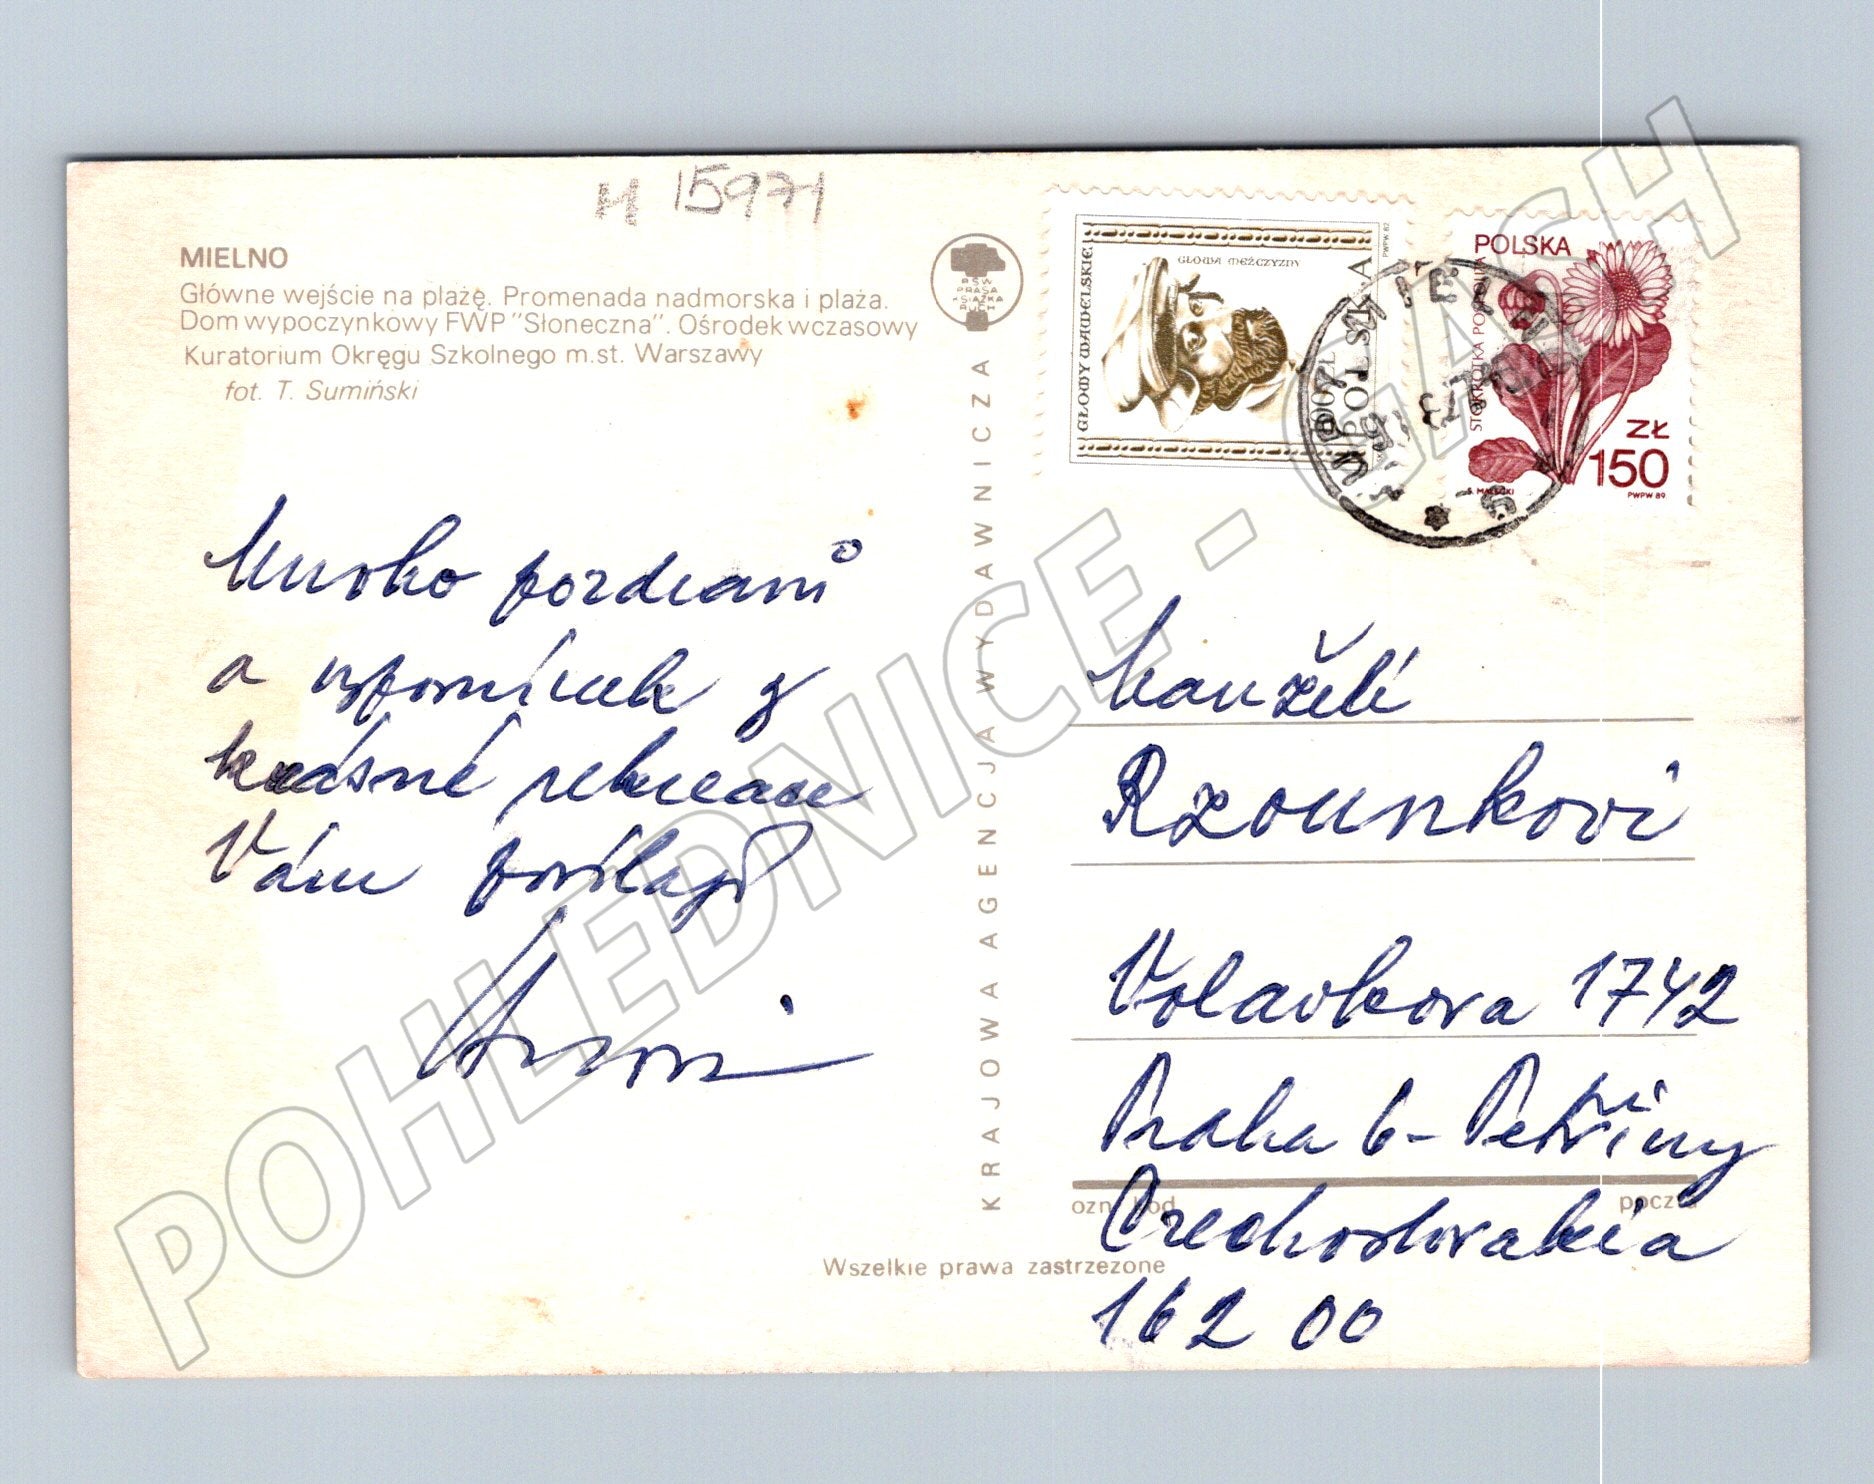 H 15971
MIELNO
Główne wejście na plażę. Promenada nadmorska i plaża.
Dom wypoczynkowy FWP "Słoneczna". Ośrodek wczasowy
Kuratorium Okręgu Szkolnego m.st. Warszawy
fot. T. Sumiński
RSW
PRASA
KSIĄŻKA
RUCH
KRAJOWA AGENCJA WYDAWNICZA
GŁOWY WAWELSKIE
GŁOWA MĘŻCZYZNY
PWPW 82
POLSKA
POLSKA
STOKROTKA POSPOLITA
ZŁ
150
S. MAŁECKI
PWPW 89
Mnoho pozdravů
a vzpomínek z
krásné rekreace
Vám posílají
Manželé
Rzounkovi
Volavkova 1742
Praha 6 - Petřiny
Czechoslovakia
162 00
ozn. kod
poczta
Wszelkie prawa zastrzeżone
POHLEDNICE - GASH